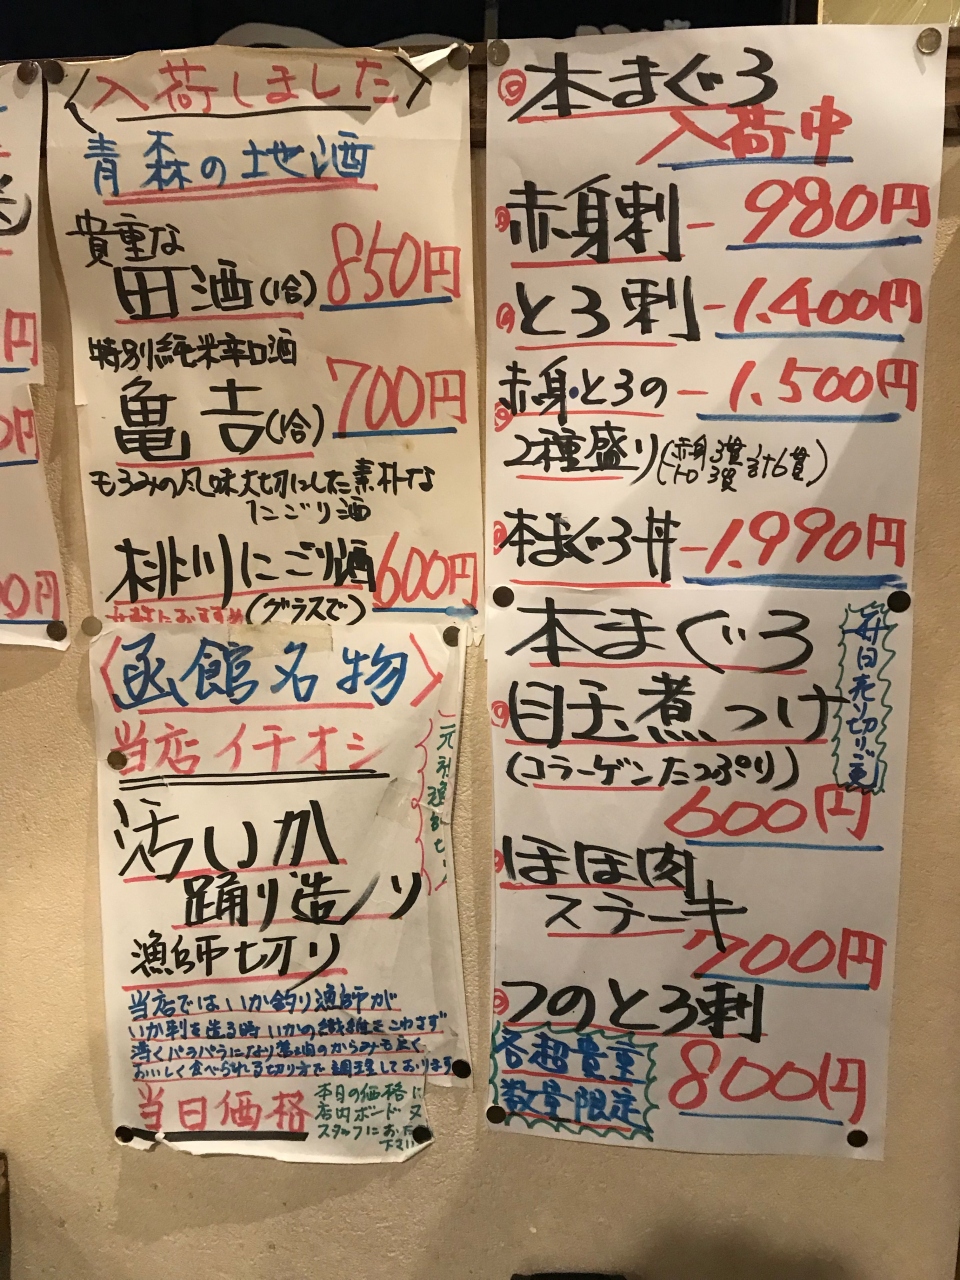 〈入荷しました〉
青森の地酒
貴重な
田酒(1合) 850円
特別純米辛口酒
亀吉(1合) 700円
もろみの風味大切にした素朴な
にごり酒
桃川にごり酒 600円
(グラスで)
〈函館名物〉
当店イチオシ
活いか
踊り造り
漁師切り
当店ではいか釣り漁師が
いか刺を造る時いかの繊維をこわさず
薄くパラパラになり醤油のからみも良く
おいしく食べられる切り方で調理しております
当日価格
本日の価格は
店内ボード又
スタッフにお
下さい
本まぐろ
入荷中
赤身刺-980円
とろ刺-1.400円
赤身・とろの-1.500円
2種盛り(赤身3貫 トロ3貫 計6貫)
本まぐろ丼-1.990円
本まぐろ
目玉煮つけ
(コラーゲンたっぷり)
毎日売り切り御免
600円
ほほ肉
ステーキ
700円
つのとろ刺
各超貴重
数量限定
800円
円
円
00円